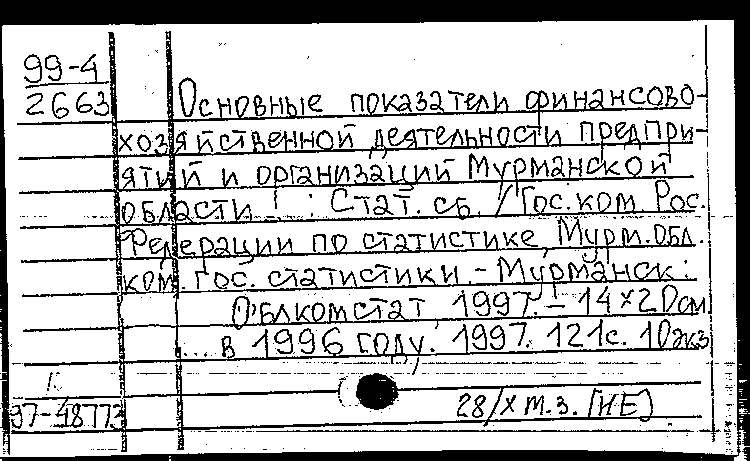 99-4
2663
Основные показатели финансово-
хозяйственной деятельности предпри-
ятий и организаций Мурманской
области : Стат. сб. / Гос. ком. Рос.
Федерации по статистике, Мурм. обл.
ком. гос. статистики. - Мурманск :
Облкомстат, 1997. - 14×20 см
... в 1996 году. 1997. 121с. 10экз
97-48773
28/X т.з. [НЕ]